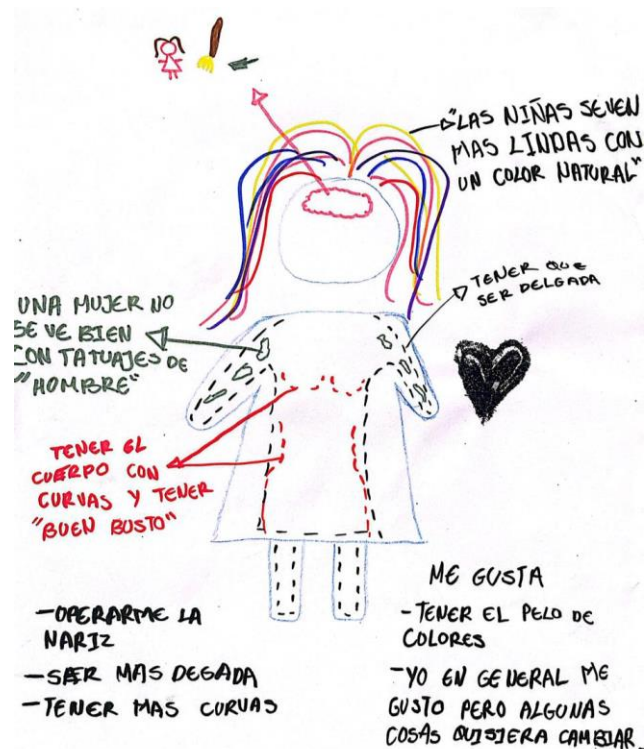 "LAS NIÑAS SE VEN
MAS LINDAS CON
UN COLOR NATURAL"
TENER QUE
SER DELGADA
UNA MUJER NO
SE VE BIEN
CON TATUAJES DE
"HOMBRE"
TENER EL
CUERPO CON
CURVAS Y TENER
"BUEN BUSTO"
-OPERARME LA
NARIZ
-SER MAS DEGADA
-TENER MAS CURVAS
ME GUSTA
-TENER EL PELO DE
COLORES
-YO EN GENERAL ME
GUSTO PERO ALGUNAS
COSAS QUISIERA CAMBIAR